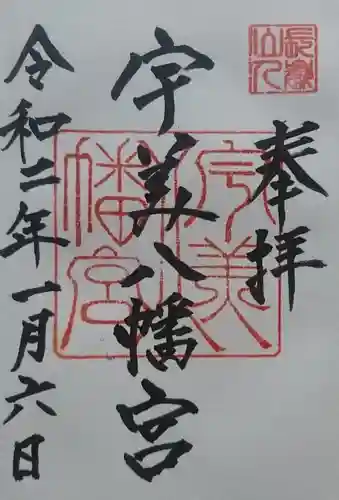 奉拝
宇美八幡宮
令和二年一月六日
宇美
八幡宮